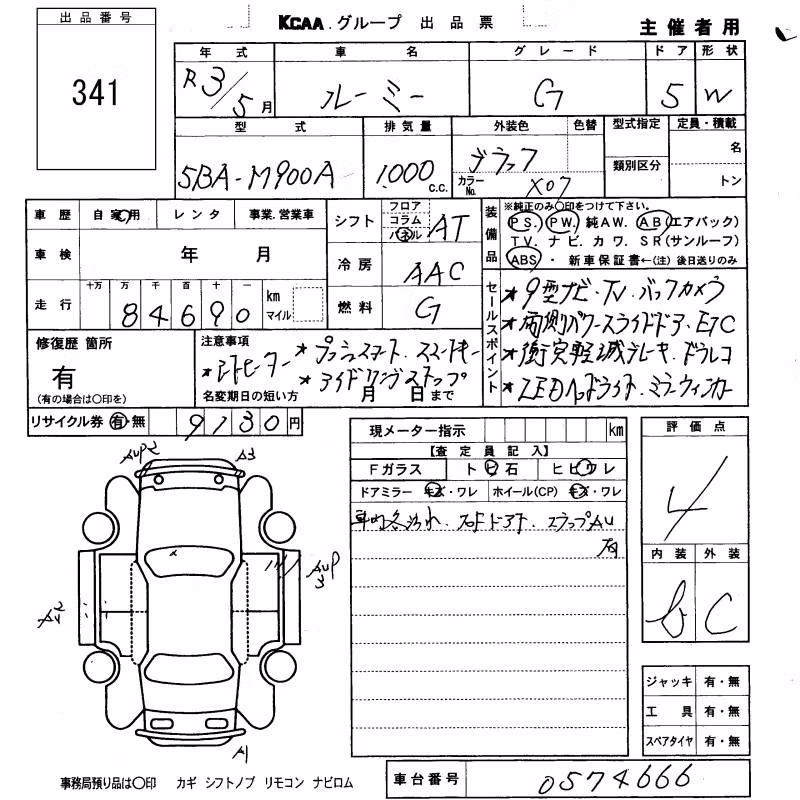 出品番号
341
KCAA グループ 出品票
主催者用
年式 車名 グレード ドア 形状
R3/5月 ルーミー G 5 W
型式 排気量 外装色 色替 型式指定 定員・積載
5BA-M900A 1000 C.C. ブラック 名
カラーNo. X07 類別区分 トン
車歴 自家用 レンタ 事業.営業車
車検 年 月
走行 十万 万 千 百 十 一
84690 km マイル
シフト フロア コラム パネル AT
冷房 AAC
燃料 G
装備品
※純正のみ〇印をつけて下さい。
PS. PW. 純AW. AB(エアバック)
TV. ナビ. カワ. SR(サンルーフ)
ABS・ 新車保証書←(注)後日送りのみ
セールスポイント
★9型ナビ・TV・バックカメラ
★両側パワースライドドア・ETC
★衝突軽減ブレーキ・ドラレコ
★LEDヘッドライト・ミラーウィンカー
修復歴 箇所
有
(有の場合は〇印を)
注意事項
★シートヒーター ★プッシュスタート・スマートキー
★アイドリングストップ
名変期日の短い方 月 日まで
リサイクル券 有・無 9730円
現メーター指示 km
【査定員記入】
Fガラス トビ石 ヒビワレ
ドアミラー キズ・ワレ ホイール(CP) キズ・ワレ
有
評価点
4
内装 外装
b C
AUP2 A3
AUP3
AU2
A1
ジャッキ 有・無
工具 有・無
スペアタイヤ 有・無
事務局預り品は〇印 カギ シフトノブ リモコン ナビロム
車台番号 0574666